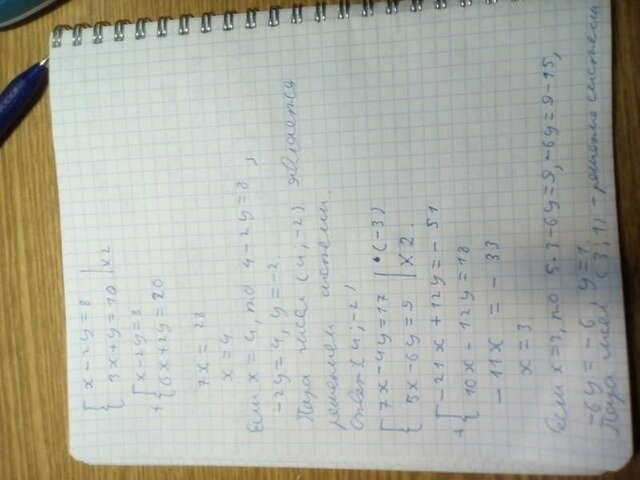 { x - 2y = 8
{ 3x + y = 10 | x 2
+ { x - 2y = 8
{ 6x + 2y = 20
7x = 28
x = 4
Если x = 4, то 4 - 2y = 8,
-2y = 4, y = -2
Пара чисел (4; -2) является
решением системы.
Ответ (4; -2)
{ 7x - 4y = 17 | · (-3)
{ 5x - 6y = 9 | x 2.
+ { -21x + 12y = -51
{ 10x - 12y = 18
-11x = -33
x = 3
Если x = 3, то 5·3 - 6y = 9, -6y = 9 - 15,
-6y = -6 y = 1
Пара чисел (3; 1) - решение системы